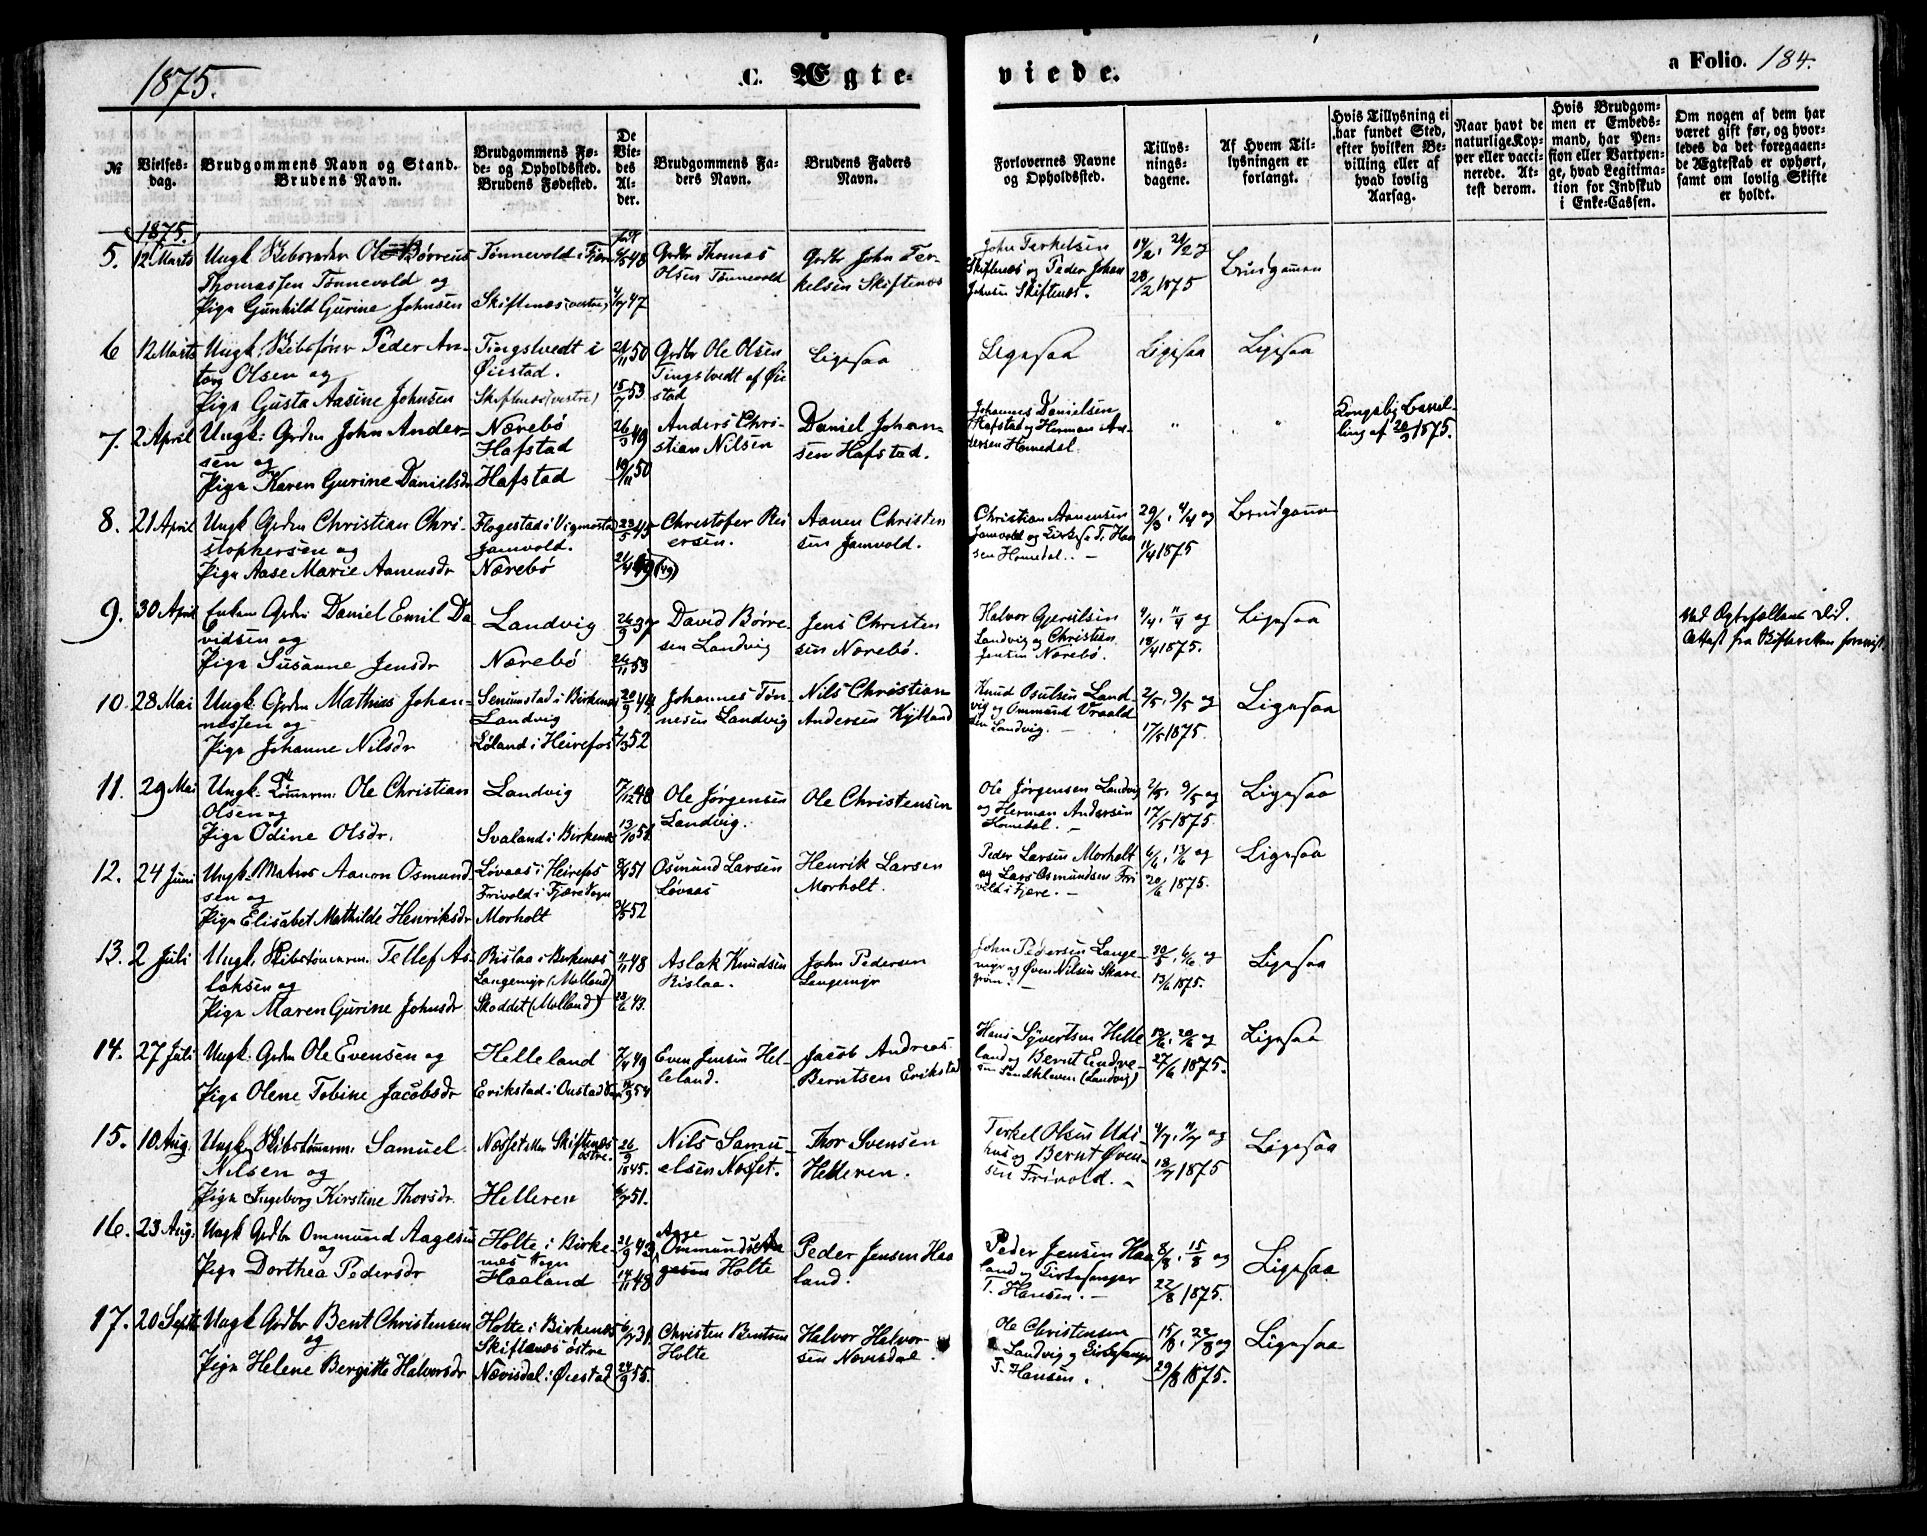 1875.
C. Ægte-
viede.
a Folio. 184.
№
Vielses-
dag.
Brudgommens Navn og Stand.
Brudens Navn.
Brudgommens Fø-
de- og Opholdssted.
Brudens Fødested.
De
Vie-
des
Al-
der.
Brudgommens Fa-
ders Navn.
Brudens Faders
Navn.
Forlovernes Navne
og Opholdssted.
Tillys-
nings-
dagene.
Af Hvem Til-
lysningen er
forlangt.
Hvis Tillysning ei
har fundet Sted,
efter hvilken Be-
villing eller af
hvad lovlig
Aarsag.
Naar havt de
naturlige Kop-
per eller vacci-
nerede. At-
test derom.
Hvis Brudgom-
men er Embeds-
mand, har Pen-
sion eller Vartpen-
ge, hvad Legitima-
tion for Indskud
i Enke-Cassen.
Om nogen af dem har
været gift før, og hvor-
ledes da det foregaaen-
de Ægteskab er ophørt,
samt om lovlig Skifte
er holdt.
1875.
5. 12 Marts
Ungk. Ole Børreus
Thomassen Tønnevold og
Pige Gunhild Gurine Johnsen
Tønnevold i Fjære
Skiftenæs (vestre)
48
47
Grdbr Thomas
Olsen Tønnevold
Grdbr John Ter-
kelsen Skiftenæs
John Terkelsen
Skiftenæs og Peder Johan
Johnsen Skiftenæs.
14/2, 21/2 og
28/2 1875
Brudgommen
6 12 Marts
Ungk. Skibsfører Peder An-
ton Olsen og
Pige Gusta Aasine Johnsen
Tingstvedt i
Øiestad.
Skiftenæs (vestre)
21/11 50
15/7 53
Grdbr Ole Olsen
Tingstvedt af Øie
stad
Ligesaa
Ligesaa
Ligesaa
Ligesaa
7. 2 April
Ungk: Grdm John Ander-
sen og
Pige Karen Gurine Danielsdr
Nærebø
Hafstad
Hafstad
26/3 49
19/11 50
Anders Chri-
stian Nilsen
Daniel Johan-
sen Hafstad.
Johannes Danielsen
Hafstad og Herman An-
dersen Homedal.
"
"
Kongelig Bevil-
ling af 20/3 1875.
8. 21 April
Ungk Grdm Christian Chri-
stophersen og
Pige Aase Marie Aanensdr
Flogestad i Vigmostad
Jamvold.
Nærebø
23/5 45
21/4 49 (49)
Christofer Rei
ersen.
Aanen Christen
sen Jamvold.
Christian Aanensen
Jamvold og Kirkes. T. Han
sen Homedal. –
29/3, 4/4 og
11/4 1875
Brudgomm
9. 30 April
Enkem Grdm Daniel Emil Da-
vidsen og
Pige Susanne Jensdr
Landvig
Nærebø
26/9 37
26/11 53
David Børre-
sen Landvig
Jens Christen
sen Nærebø.
Halvor Gjerulsen
Landvig og Christen
Jensen Nærebø.
4/4, 11/4 og
18/4 1875.
Ligesaa
Ved Ægtefællens Død.
Attest fra Skifteretten forevist
10. 28 Mai
Ungk: Grdm Mathias Johan-
nessen og
Pige Johanne Nilsdr
Senumstad i Birkenæs
Landvig
Løland i Heirefos
20/9 44
7/3 52
Johannes Tøn-
nesen Landvig
Nils Christian
Andersen Kytland
Knud Osulsen Land
vig og Ommund Vraald
sen Landvig.
2/5, 9/5 og
17/5 1875.
Ligesaa
11. 29 Mai
Ungk: Tømmerm: Ole Christian
Olsen og
Pige Odine Olsdr.
Landvig
Svaland i Birkenæs
7/12 48
13/10 55
Ole Jørgensen
Landvig.
Ole Christensen
Ole Jørgensen Landvig
og Herman Andersen
Homedal. –
2/5, 9/5 og
17/5 1875.
Ligesaa
12. 24 Juni
Ungk. Matros Aanon Osmund-
sen og
Pige Elisabet Mathilde Henriksdr
Løvaas i Heirefos
Frivold i Fjære Sogn
Morholt
51
52
Osmund Larsen
Løvaas
Henrik Larsen
Morholt.
Peder Larsen Morholt
og Lars Osmundsen Fri
vold i Fjære. –
6/6, 13/6 og
20/6 1875.
Ligesaa
13. 2 Juli
Ungk. Skibstømmerm. Tellef As-
laksen og
Pige Maren Gurine Johnsdr
Rislaa i Birkenæs
Langemyr (Molland)
Skoddet (Molland)
11/11 48
23/6 43.
Aslak Knudsen
Rislaa.
John Pedersen
Langemyr
John Pedersen Lange-
myr og Øven Nilsen Skare-
grøm. –
30/5, 6/6 og
13/6 1875.
Ligesaa
14. 27 Juli
Ungk. Grdm Ole Evensen og
Pige Olene Tobine Jacobsdr
Helleland
Erikstad i
7/4 49
54
Even Jensen Hel-
leland.
Jacob Andreas
Berntsen Erikstad
Hans Syvertsen Helle
land og Bernt Endre-
sen Sandkleven (Landvig)
13/6, 20/6 og
27/6 1875.
Ligesaa
15. 10 Aug.
Ungk Skibstømmerm. Samuel
Nilsen og
Pige Ingeborg Kirstine Thorsdr
Næsset eller Skiftenæs
østre.
Helleren
26/9
1845.
51.
Nils Samu-
elsen Næsset.
Thor Svensen
Helleren.
Terkel Olsen Udi-
hus og Bernt Øven-
sen Frivold. –
4/7, 11/7 og
18/7 1875
Ligesaa
16. 23 Aug.
Ungk Grdbr Ommund Aagesen
og
Pige Dorthea Pedersdr
Holte i Birke-
næs Sogn
Haaland
21/9 43
14/11 48
Aage
Ommundsen
Holte
Peder Jensen Haa
land.
Peder Jensen Haa
land og Kirkesanger
T. Hansen. –
8/8, 15/8 og
22/8 1875.
Ligesaa
17. 20 Septr
Ungk Grdbr Bent Christensen
og
Pige Helene Bergitte Halvorsdr
Holte i Birkenæs
Skiftenæs østre
Nævisdal i Øiestad
31.
24/9 55.
Christen Bentsen
Holte
Halvor Halvor-
sen Nævesdal.
Ole Christensen
Landvig og Kirkesanger
T. Hansen.
15/8, 22/8 og
29/8 1875.
Ligesaa